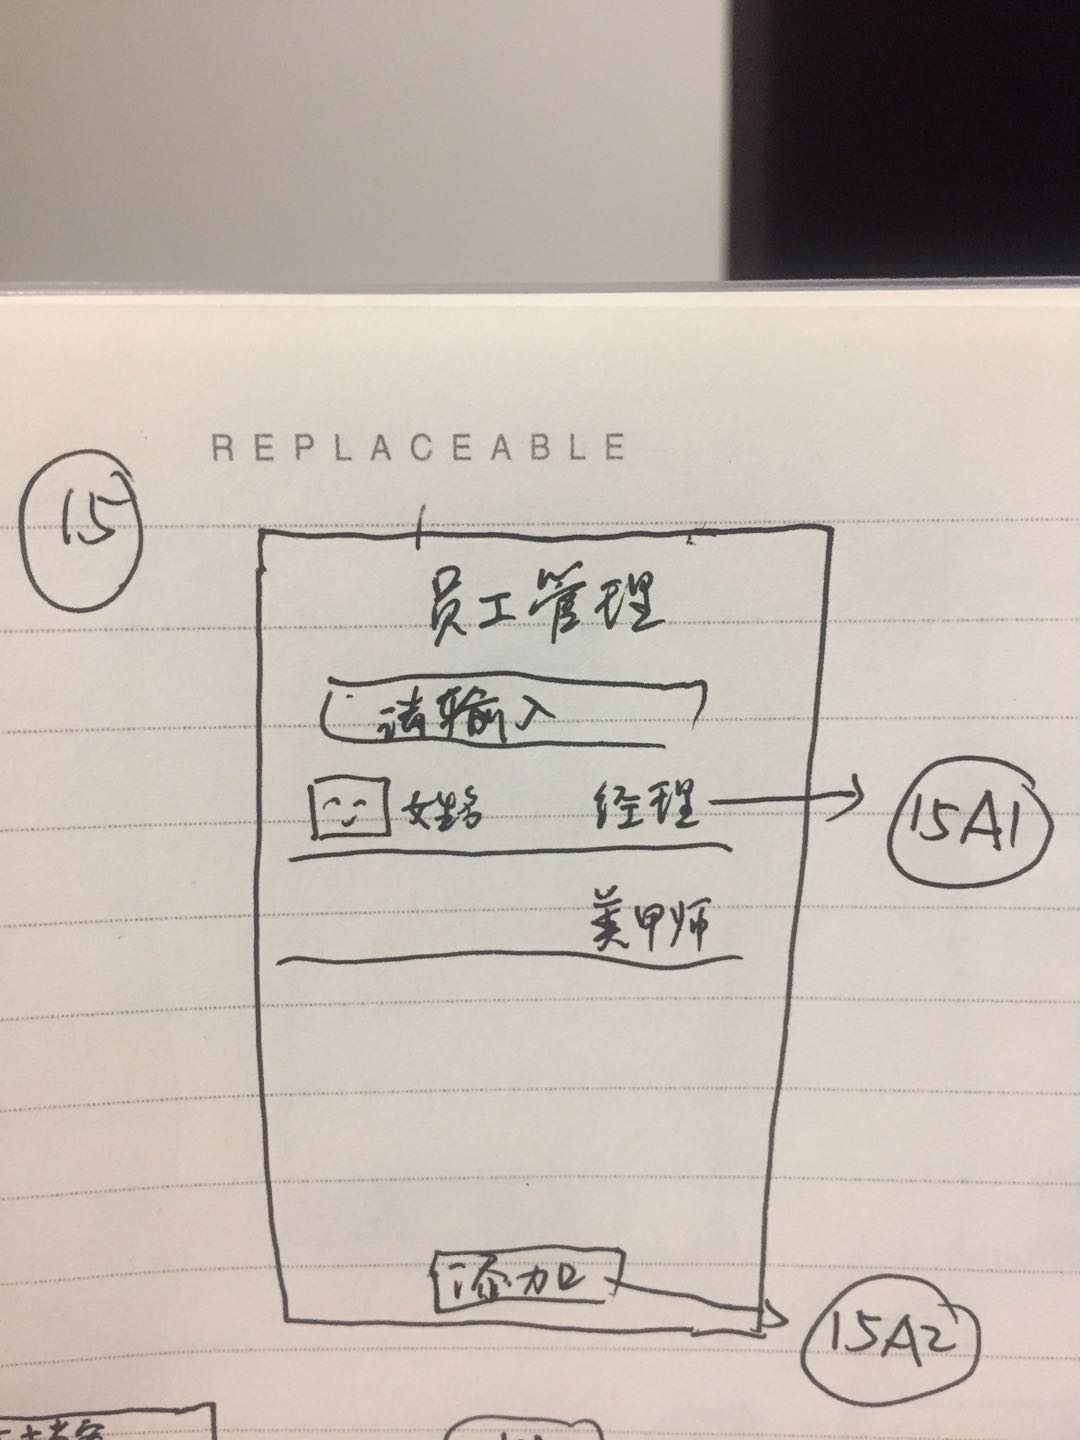 REPLACEABLE
15
员工管理
请输入
姓名 经理
15A1
美甲师
添加
15A2